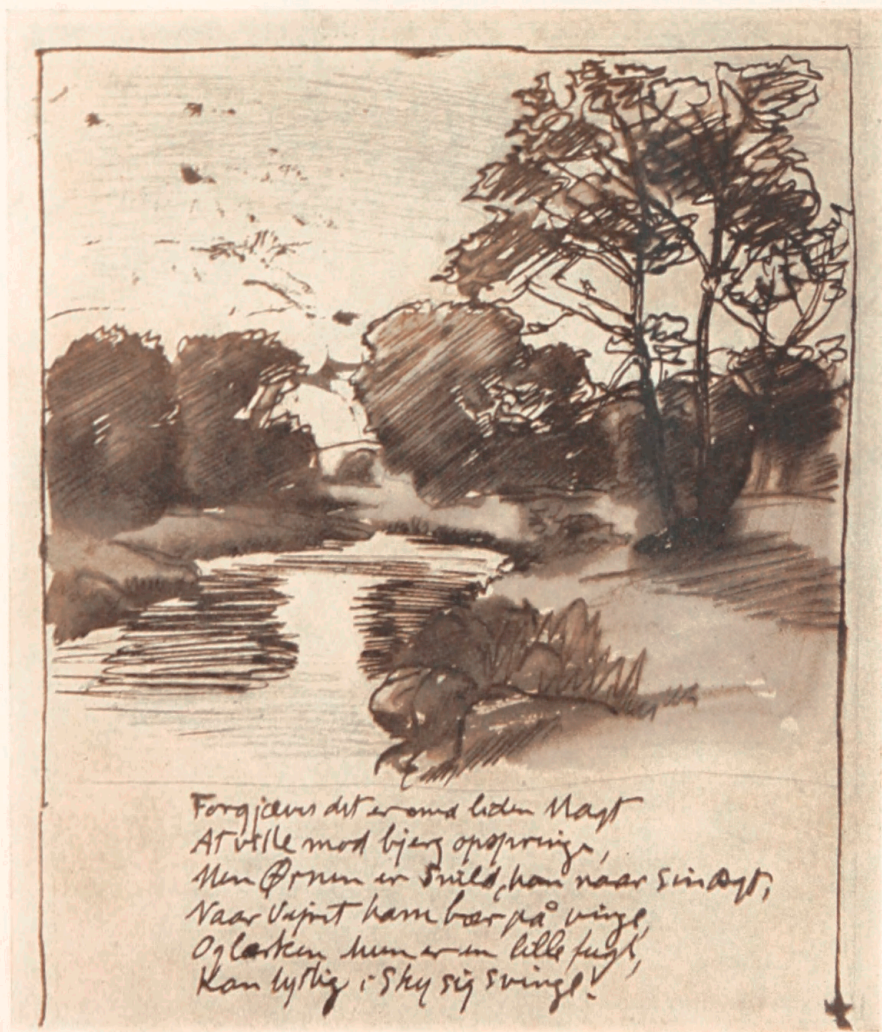 Forgjæves dit er med liden Magt
At ville mod bjerg opspringe,
Men Ørnen er Snild, han naar sin Agt,
Naar Vejret ham bær på vinge,
Og lærken hun er en lille fugl,
Kan lystig i Sky sig svinge!